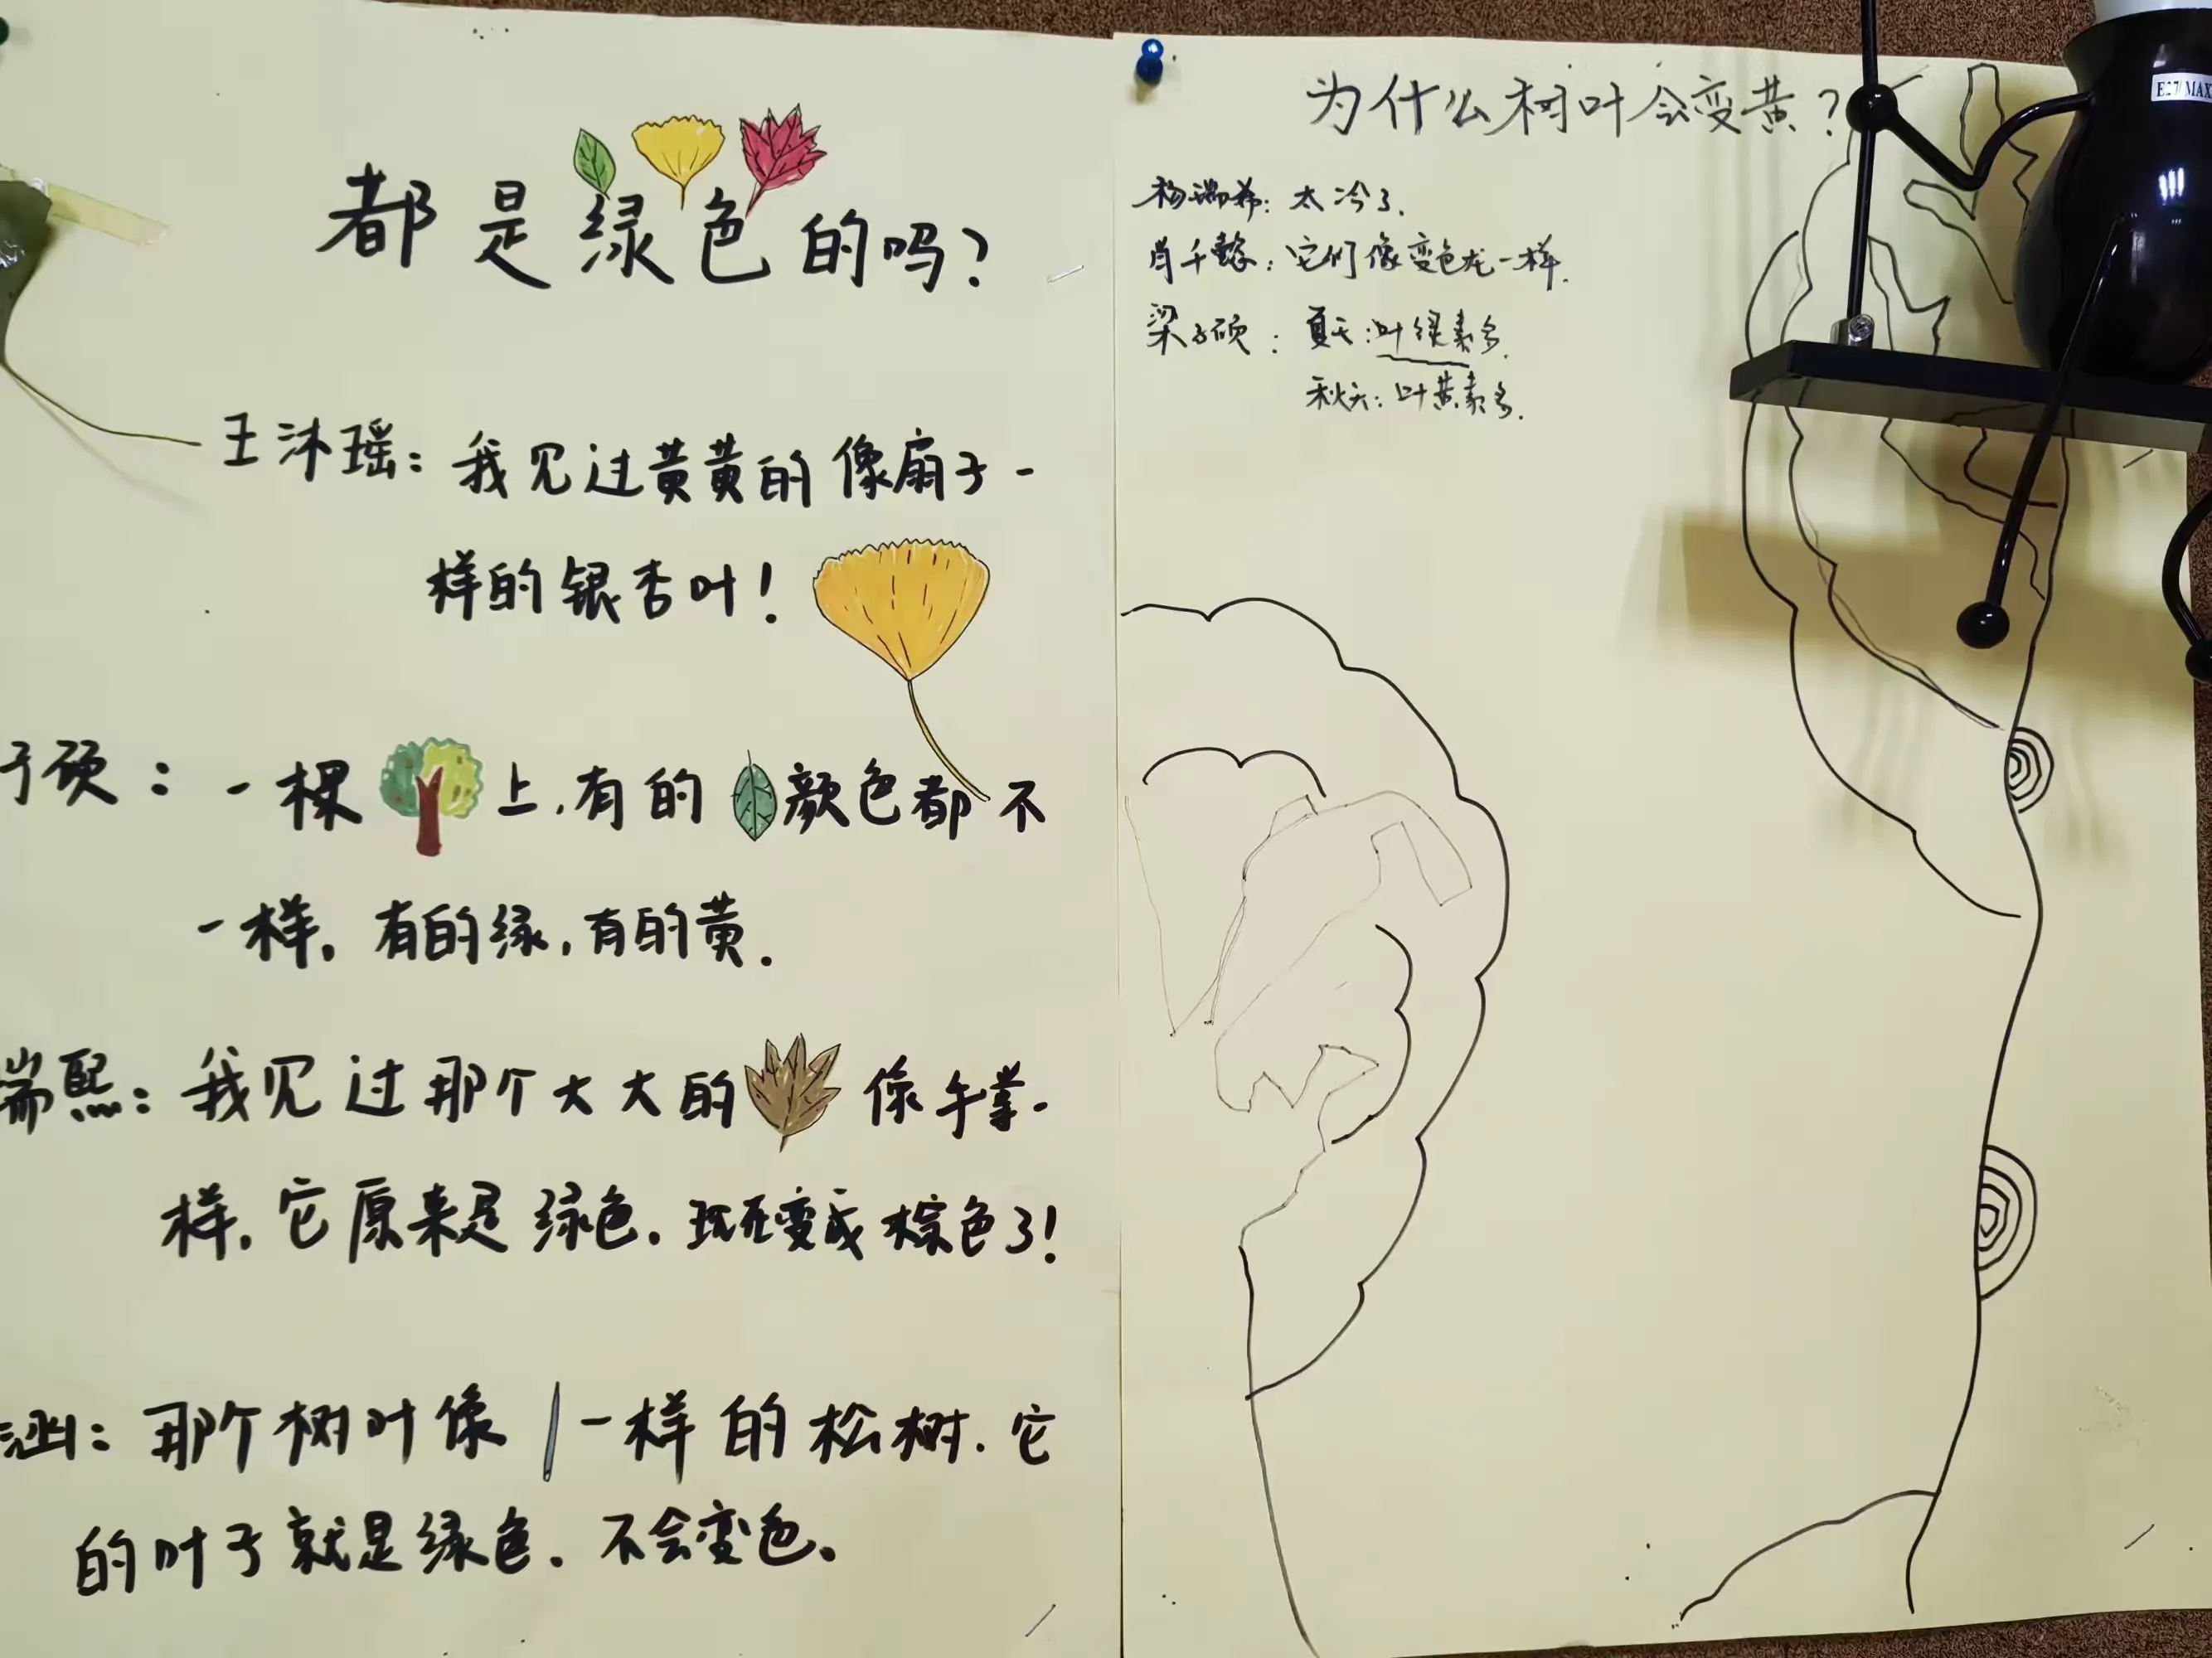 都是绿色的吗?
王沐瑶：我见过黄黄的像扇子一
样的银杏叶！
子硕：一棵上，有的颜色都不
一样，有的绿，有的黄．
瑞熙：我见过那个大大的像手掌一
样，它原来是绿色．现在变成棕色了！
涵：那个树叶像一样的松树．它
的叶子就是绿色．不会变色。
为什么树叶会变黄？
杨瑞希：太冷了．
肖千懿：它们像变色龙一样．
梁子硕：夏天：叶绿素多．
秋天：叶黄素多．
E27/MAX